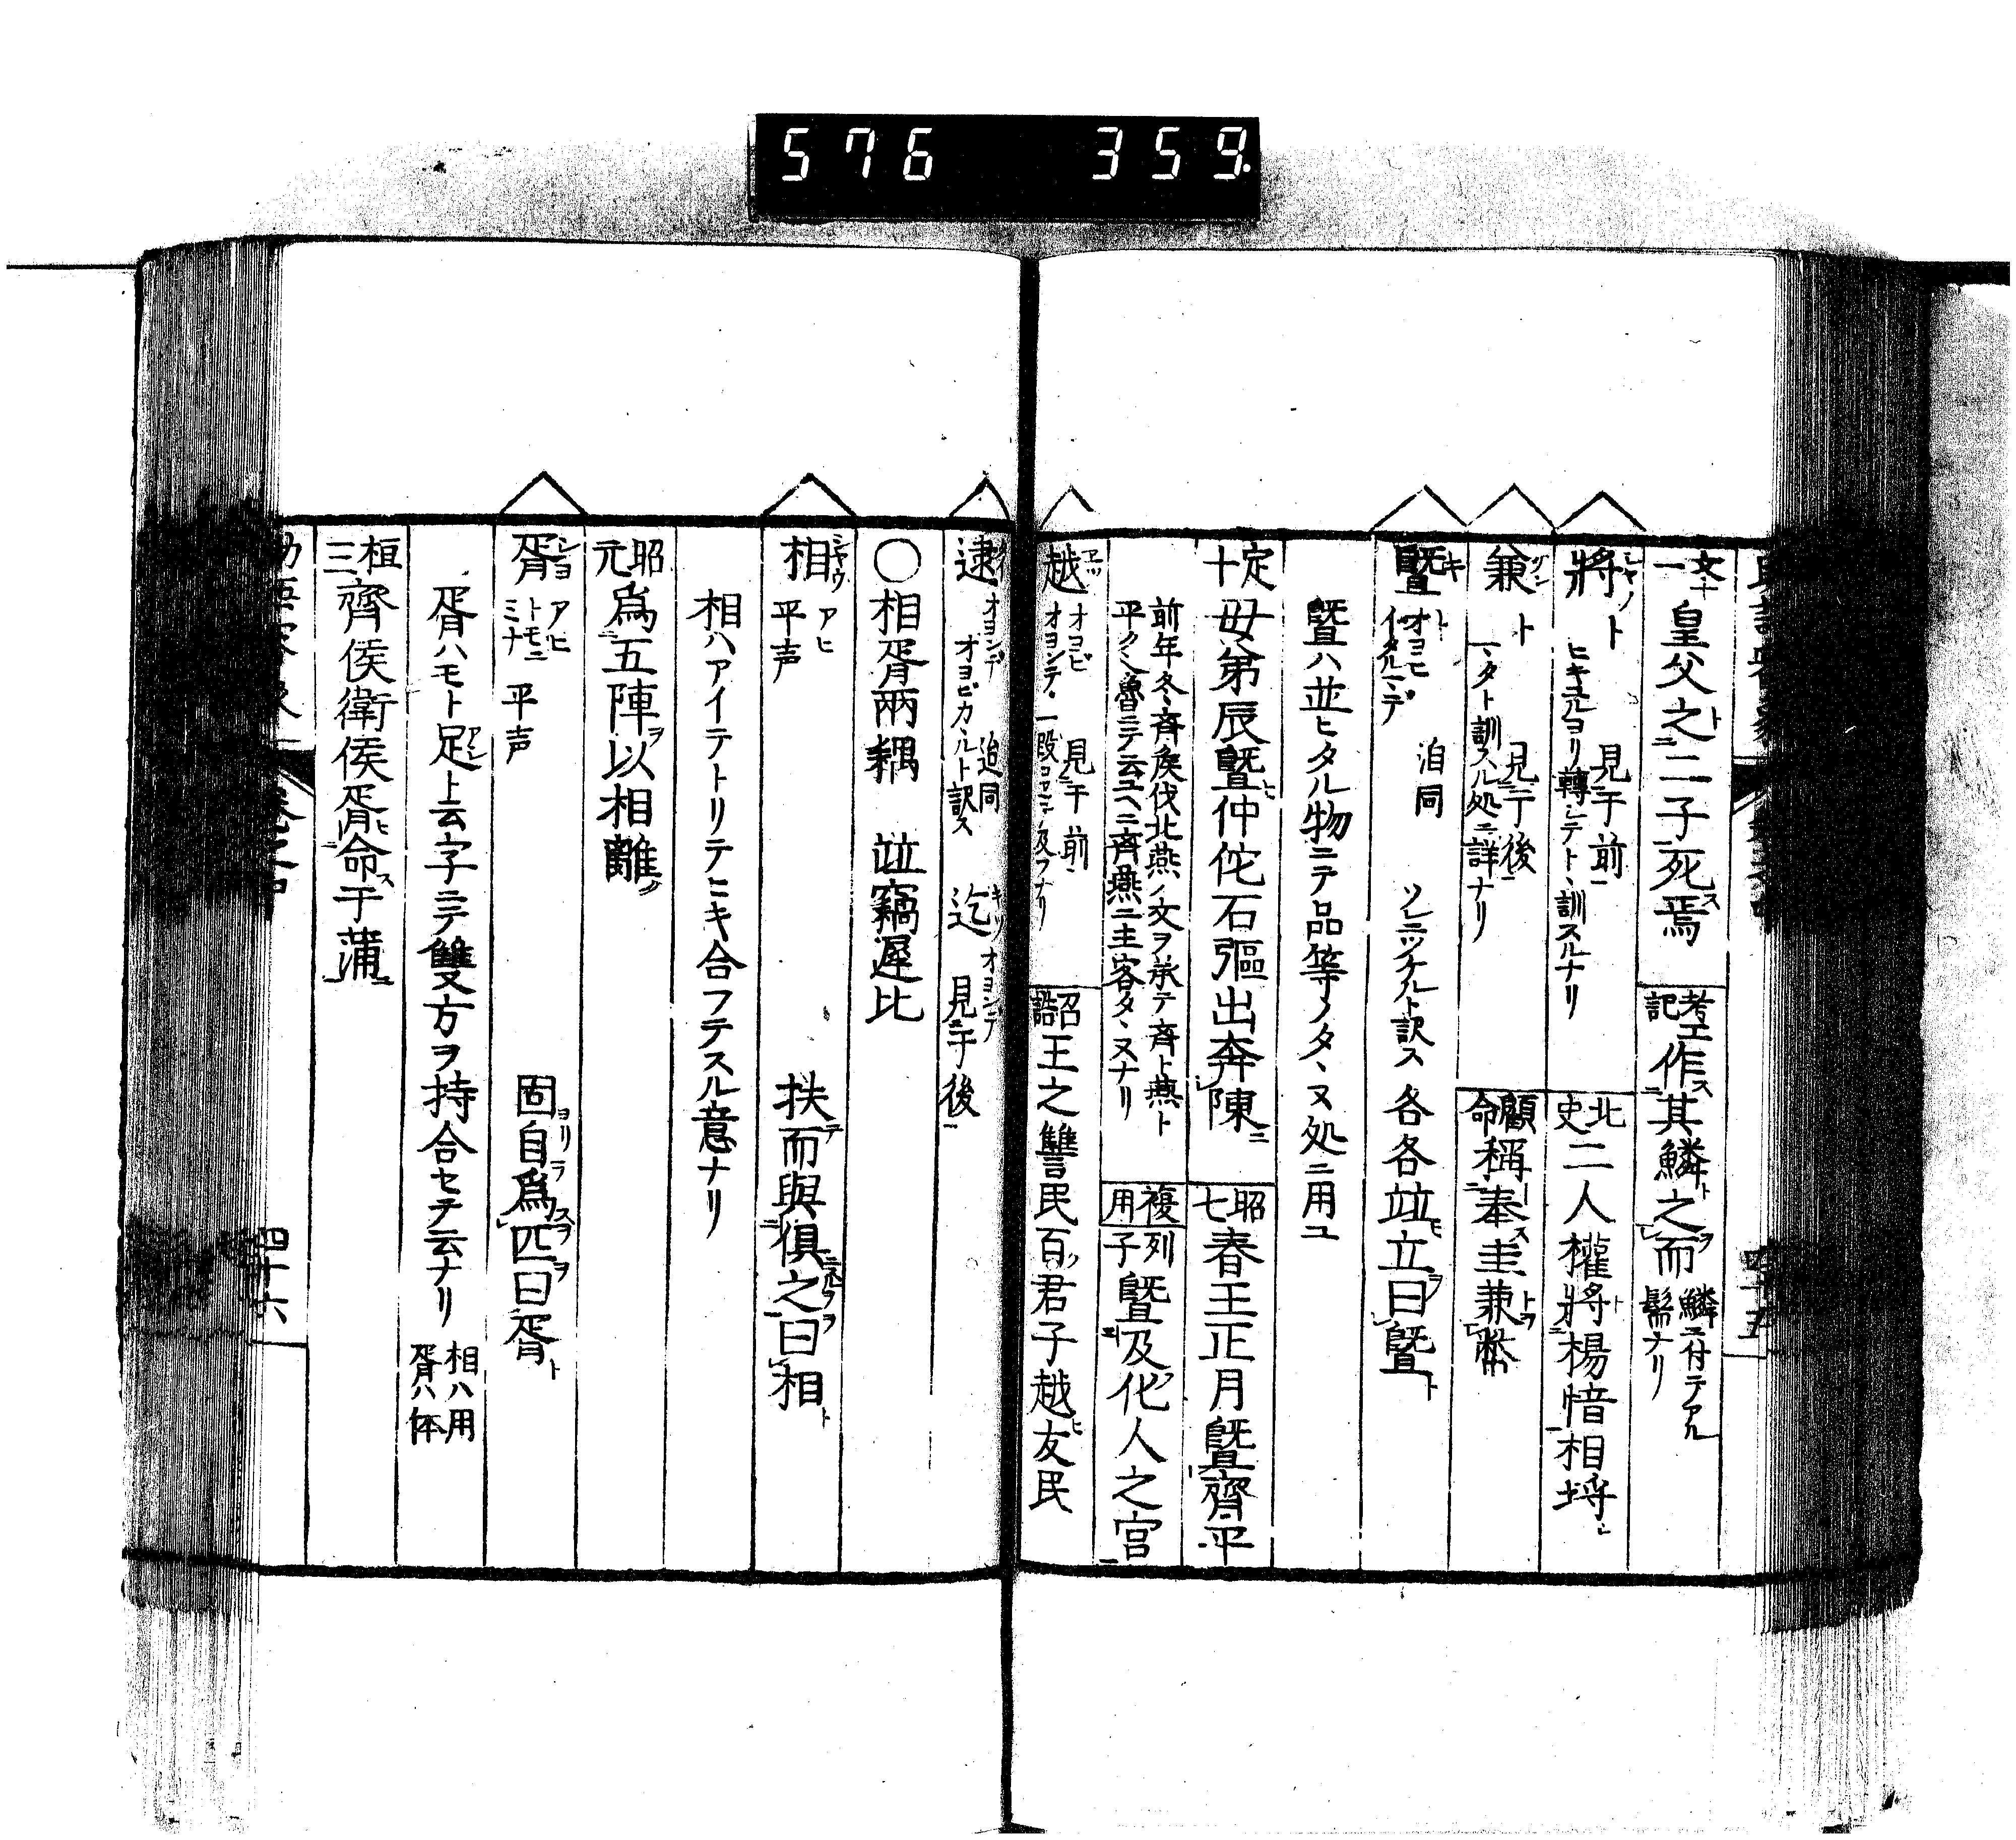 576 359
文十一 皇父之二子死焉 考工記 作其鱗之而 鱗ニ付テアル髵ナリ
將 ト ヒキユルヨリ轉シテト訓スルナリ 見于前 北史 二人權將楊愔相埒
兼 ト マタト訓スル処ニ詳ナリ 見于後 顧命 稱奉圭兼幣
曁 キ オヨヒ イタルマデ 洎同 ソレニツケルト訳ス 各各竝立曰曁
曁ハ並ヒタル物ニテ品等ノタヽヌ処ニ用ユ
定十 母弟辰曁仲佗石彄出奔陳 昭七 春王正月曁齊平
前年冬齊侯伐北燕ノ文ヲ承テ斉ト燕ト平ク魯ニテ云ユヘニ齊燕ニ主客タヽヌナリ 複用 列子 曁及化人之宮
越 オヨビ オヨンデ 見于前 召誥 王之讐民百君子越友民
逮 オヨンデ オヨビカヽルト訳ス 迨同 迄 オヨンデ 見于後
〇相胥兩耦 竝竊遅比
相 シヤウ アヒ 平声 扶而與俱之曰相
相ハアイテトリテヒキ合フテスル意ナリ
昭元 爲五陣以相離
胥 シヨ アヒ トモニ ミナ 平声 固自爲匹曰胥
胥ハモト足ト云字ニテ雙方ヲ持合セテ云ナリ 相ハ用 胥ハ体
桓三 齊侯衛侯胥命于蒲
四十六